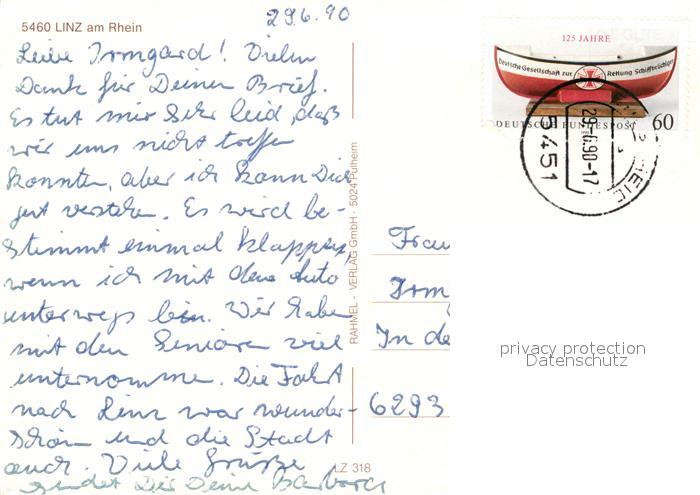 5460 LINZ am Rhein
29.6.90
Liebe Irmgard! Vielen
Dank für Deinen Brief.
Es tut mir sehr leid, daß
wir uns nicht treffen
konnten, aber ich kann Dich
gut verstehen. Es wird be-
stimmt einmal klappen,
wenn ich mit dem Auto
unterwegs bin. Wir haben
mit den Senioren viel
unternommen. Die Fahrt
nach Linz war wunder-
schön und die Stadt
auch. Viele Grüße
sendet Dir Deine Barbara
RAHMEL - VERLAG GmbH - 5024 Pulheim
LZ 318
125 JAHRE
Deutsche Gesellschaft zur Rettung Schiffbrüchiger
DEUTSCHE BUNDESPOST 60
29.-6.90-17
5451
Frau
Irm
In de
6293
privacy protection
Datenschutz